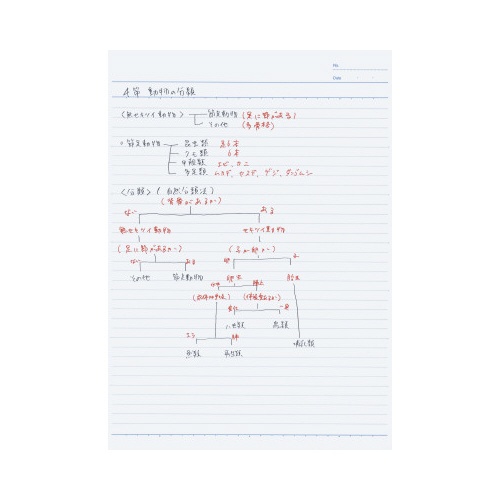 No.
Date
4章 動物の分類
〈無セキツイ動物〉 節足動物 (足に節がある)
その他 (外骨格)
○節足動物 昆虫類 足6本
クモ類
甲殻類 エビ、カニ
多足類 ムカデ、ヤスデ、ゲジ、ダンゴムシ
〈分類〉(自然分類法)
(背骨があるか)
ない ある
無セキツイ動物 セキツイ動物
(足に節があるか) (子が卵か)
ない ある 卵
その他 節足動物 卵生 胎生
ハ虫類 鳥類
エラ 肺 哺乳類
魚類 両生類